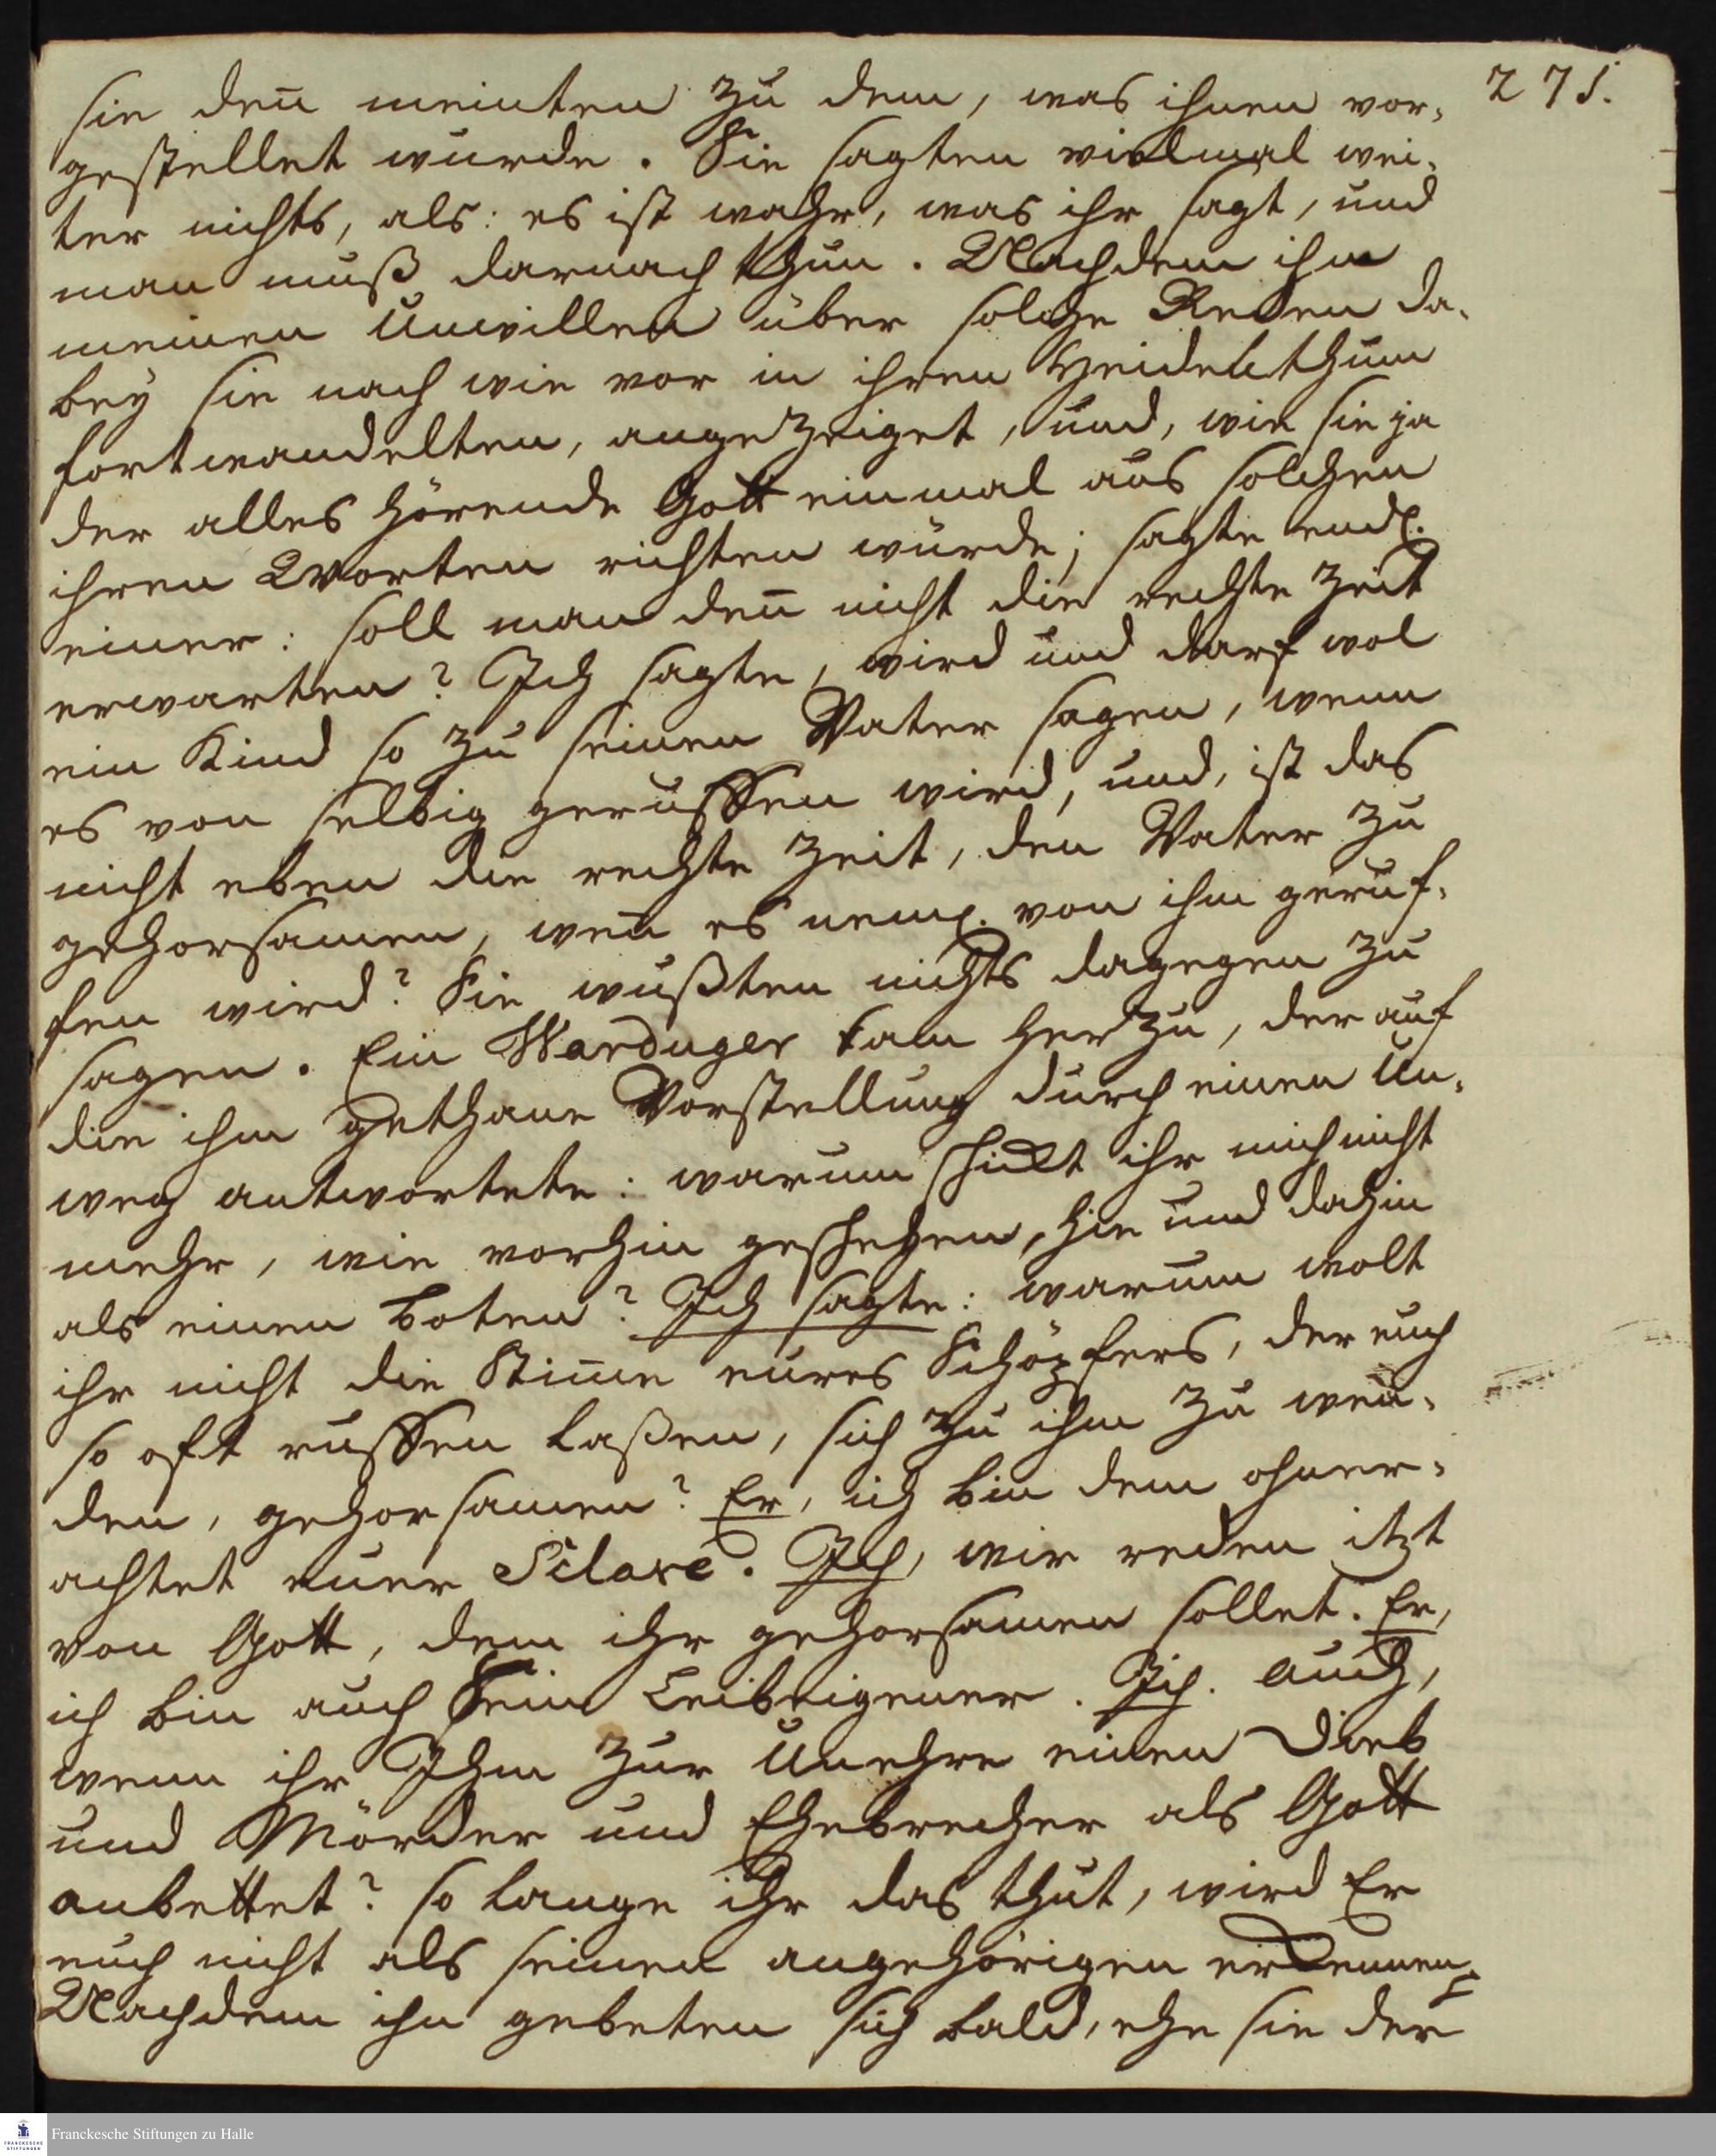 275.
sie deñ meinten zu dem, was ihnen vor-
gestellet wurde. Sie sagten vielmal wei-
ter nichts, als: es ist wahr, was ihr sagt, und
man muß darnach thun. Nachdem ihn
meinen Unwillen über solche Reden da-
bey sie nach wie vor in ihren Heidenthum
fortwandelten, angezeiget, und, wie sie ja
der alles hörende Gott einmal aus solchen
ihren Worten richten würde; sagte endl.
einer: soll man deñ nicht die rechte Zeit
erwarten? Ich sagte, wird und darf wol
ein Kind so zu seinen Vater sagen, wenn
es von selbig geruffen wird, und, ist das
nicht eben die rechte Zeit, den Vater zu
gehorsamen, weñ es neml. von ihm geruf-
fen wird? Sie wußten nichts dagegen zu
sagen. Ein Warduger kam herzu, der auf
die ihm gethane Vorstellung durch einen Um-
weg antwortete: warum schikt ihr mich nicht
mehr, wie vorhin geschehen, hie und dahin
als einen Boten? Ich sagte: warum wolt
ihr nicht die Stime eures Schöpfers, der euch
so oft ruffen laßen, sich zu ihm zu weñ-
den, gehorsamen? Er, ich bin dem ohner-
achtet euer Sclave. Ich, wir reden itzt
von Gott, dem ihr gehorsamen sollet. Er,
ich bin auch Sein Leibeigener. Ich. Auch,
wenn ihr Ihm zur Unehre einen Dieb
und Mörder und Ehebrecher als Gott
anbettet? so lange ihr das thut, wird Er
euch nicht als seinen angehörigen erkennen.
Nachdem ihn gebeten sich bald, ehe sie der
Franckesche Stiftungen zu Halle